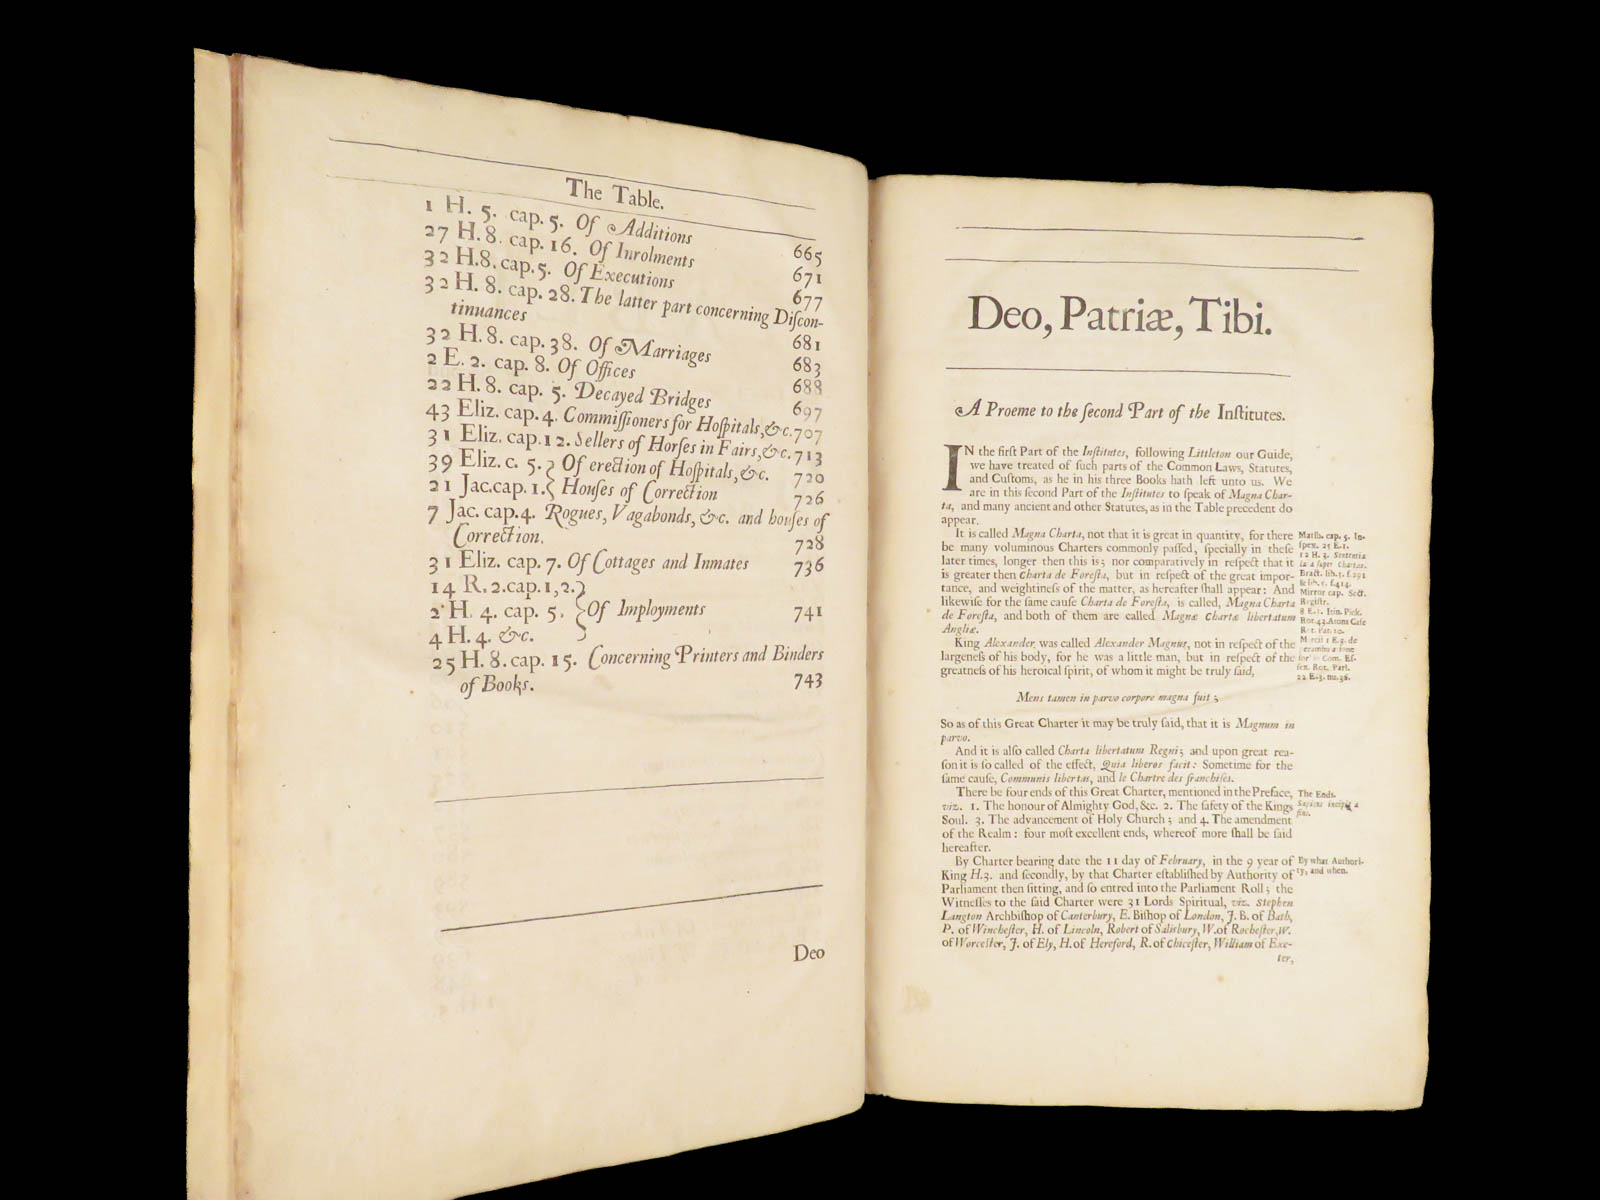 The Table.
1 H. 5. cap. 5. Of Additions 665
27 H. 8. cap. 16. Of Inrolments 671
32 H.8. cap. 5. Of Executions 677
32 H. 8. cap. 28. The latter part concerning Diſcon-
tinuances 681
32 H. 8. cap. 38. Of Marriages 683
2 E. 2. cap. 8. Of Offices 688
22 H. 8. cap. 5. Decayed Bridges 697
43 Eliz. cap. 4. Commiſſioners for Hoſpitals,&c. 707
31 Eliz. cap. 12. Sellers of Horſes in Fairs,&c. 713
39 Eliz. c. 5. Of erection of Hoſpitals,&c. 720
21 Jac.cap. 1. Houſes of Correction 726
7 Jac. cap.4. Rogues, Vagabonds, &c. and houſes of
Correction. 728
31 Eliz. cap. 7. Of Cottages and Inmates 736
14 R. 2.cap.1,2.
2 H. 4. cap. 5. Of Imployments 741
4 H. 4. &c.
25 H. 8. cap. 15. Concerning Printers and Binders
of Books. 743
Deo
Deo, Patriæ, Tibi.
A Proeme to the ſecond Part of the Inſtitutes.
IN the firſt Part of the Inſtitutes, following Littleton our Guide,
we have treated of ſuch parts of the Common Laws, Statutes,
and Cuſtoms, as he in his three Books hath left unto us. We
are in this ſecond Part of the Inſtitutes to ſpeak of Magna Char-
ta, and many ancient and other Statutes, as in the Table precedent do
appear.
It is called Magna Charta, not that it is great in quantity, for there
be many voluminous Charters commonly paſſed, ſpecially in theſe
later times, longer then this is; nor comparatively in reſpect that it
is greater then Charta de Foreſta, but in reſpect of the great impor-
tance, and weightineſs of the matter, as hereafter ſhall appear: And
likewiſe for the ſame cauſe Charta de Foreſta, is called, Magna Charta
de Foreſta, and both of them are called Magnæ Chartæ libertatum
Angliæ.
King Alexander was called Alexander Magnus, not in reſpect of the
largeneſs of his body, for he was a little man, but in reſpect of the
greatneſs of his heroical ſpirit, of whom it might be truly ſaid,
Mens tamen in parvo corpore magna fuit;
So as of this Great Charter it may be truly ſaid, that it is Magnum in
parvo.
And it is alſo called Charta libertatum Regni; and upon great rea-
ſon it is ſo called of the effect, Quia liberos facit: Sometime for the
ſame cauſe, Communis libertas, and le Chartre des franchiſes.
There be four ends of this Great Charter, mentioned in the Preface,
viz. 1. The honour of Almighty God, &c. 2. The ſafety of the Kings
Soul. 3. The advancement of Holy Church; and 4. The amendment
of the Realm: four moſt excellent ends, whereof more ſhall be ſaid
hereafter.
By Charter bearing date the 11 day of February, in the 9 year of
King H.3. and ſecondly, by that Charter eſtabliſhed by Authority of
Parliament then ſitting, and ſo entred into the Parliament Roll; the
Witneſſes to the ſaid Charter were 31 Lords Spiritual, viz. Stephen
Langton Archbiſhop of Canterbury, E. Biſhop of London, J. B. of Bath,
P. of Wincheſter, H. of Lincoln, Robert of Salisbury, W.of Rocheſter,W.
of Worceſter, J. of Ely, H. of Hereford, R. of Chiceſter, William of Exe-
ter,
Marlb. cap. 5. In-
ſpex. 25 E.1.
12 H. 3. Sententia
lata ſuper Chartas.
Bract. lib. 5. f.291
& lib. 5. f.414.
Mirror cap. Sect.
Regiſtr.
8 E.1. Itin. Pick.
Rot.43.Atons Caſe
Rot. Par. 10.
Marcii 1 E.3. de
for Com. Eſ-
ſex. Rot. Parl.
22 E.3. nu.36.
The Ends.
Sapiens incipit a
fine.
By what Authori-
ty, and when.